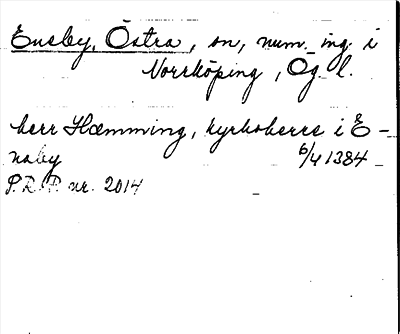 Eneby, Östra, sn, num. ing. i
Norrköping, Ög l.
herr Hæmming, kyrkoherre i E-
naby 6/4 1384
P.R.P. nr. 2014